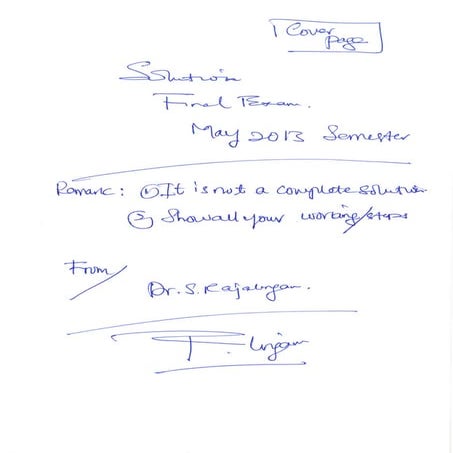 1 Cover
page
Solution
Final Exam.
May 2013 Semester
Remark: ① It is not a complete solution
② Show all your working/steps
From
Dr. S. Rajalingam.